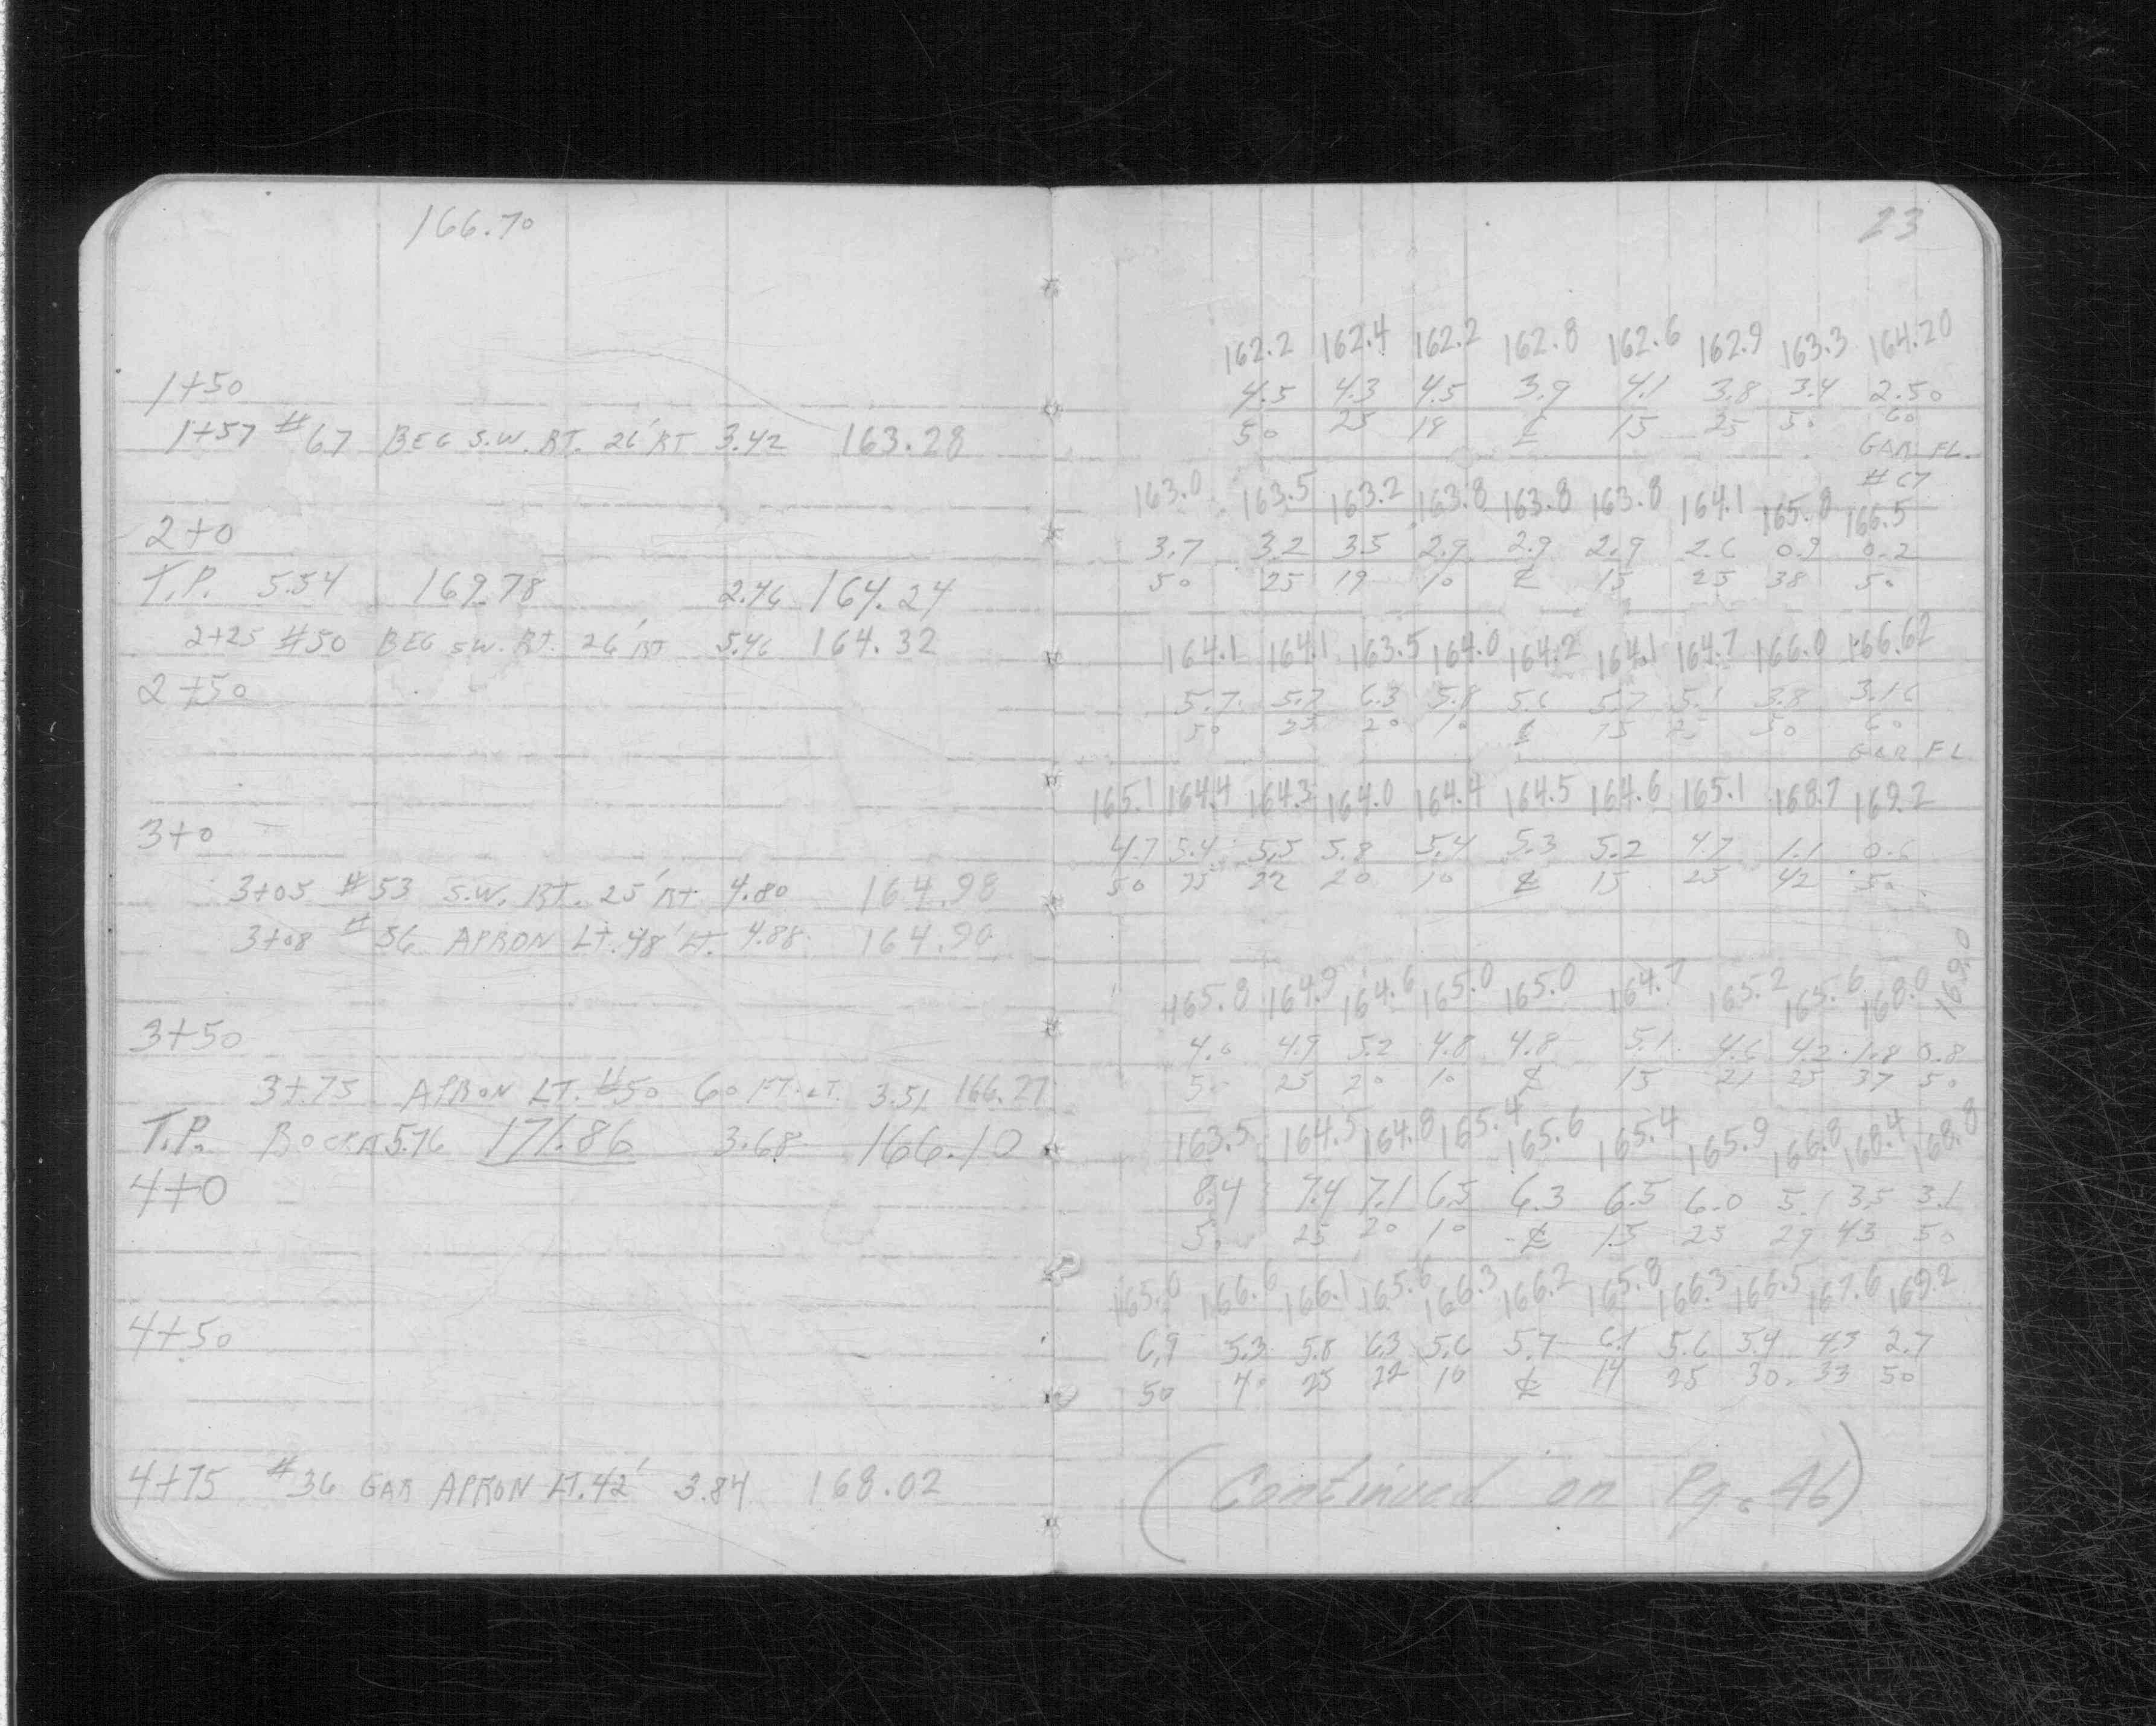 166.70
1+50
1+57 #67 BEG S.W. RT. 26' RT 3.42 163.28
2+0
T.P. 5.54 169.78 2.46 164.24
2+25 #50 BEG S.W. RT. 26' RT 5.46 164.32
2+50
3+0
3+05 #53 S.W. RT. 25' RT. 4.80 164.98
3+08 #56 APRON LT. 48' LT. 4.88 164.90
3+50
3+75 APRON LT. #50 60 FT. LT. 3.51 166.27
T.P. 5.76 171.86 3.68 166.10
4+0
4+50
4+75 #36 GAR APRON LT. 42' 3.84 168.02
23
162.2 162.4 162.2 162.8 162.6 162.9 163.3 164.20
4.5 4.3 4.5 3.9 4.1 3.8 3.4 2.50
50 25 18 ℄ 15 25 50 60
GAR FL.
#67
163.0 163.5 163.2 163.8 163.8 163.8 164.1 165.8 166.5
3.7 3.2 3.5 2.9 2.9 2.9 2.6 0.9 0.2
50 25 19 10 ℄ 15 25 38 50
164.1 164.1 163.5 164.0 164.2 164.1 164.7 166.0 166.62
5.7 5.7 6.3 5.8 5.6 5.7 5.1 3.8 3.16
50 25 20 10 ℄ 15 25 50 60
GAR FL
165.1 164.4 164.3 164.0 164.4 164.5 164.6 165.1 168.7 169.2
4.7 5.4 5.5 5.8 5.4 5.3 5.2 4.7 1.1 0.6
50 25 22 20 10 ℄ 15 25 42 50
165.8 164.9 164.6 165.0 165.0 164.7 165.2 165.6 168.0 169.0
4.0 4.9 5.2 4.8 4.8 5.1 4.6 4.2 1.8 0.8
50 25 20 10 ℄ 15 21 25 37 50
163.5 164.5 164.8 165.4 165.6 165.4 165.9 166.8 168.4 168.8
8.4 7.4 7.1 6.5 6.3 6.5 6.0 5.1 3.5 3.1
50 25 20 10 ℄ 15 25 29 43 50
165.0 166.6 166.1 165.6 166.3 166.2 165.8 166.3 166.5 167.6 169.2
6.9 5.3 5.8 6.3 5.6 5.7 6.1 5.6 5.4 4.3 2.7
50 40 25 22 10 ℄ 14 25 30 33 50
(Continued on Pg. 46)